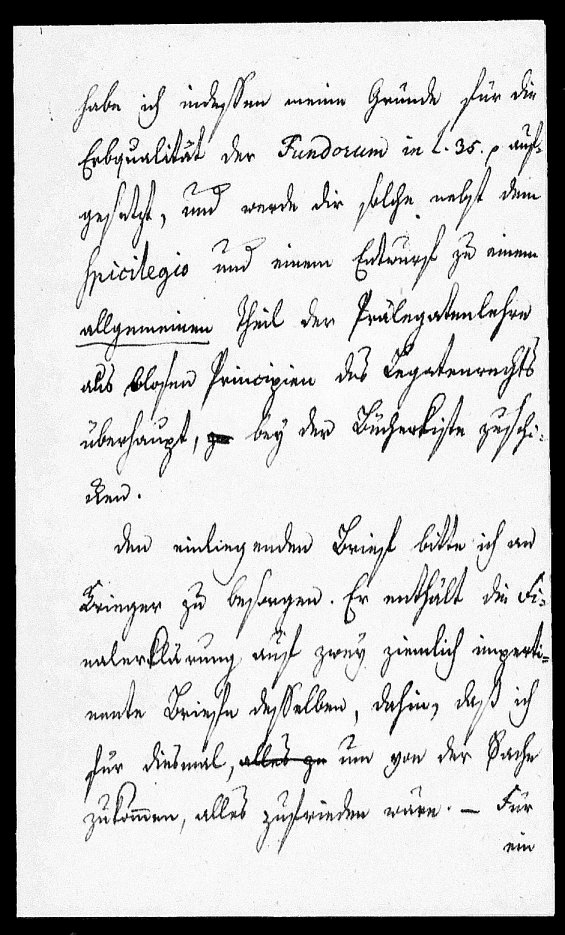 habe ich indessen meine Gründe für die
Erbqualität der Fundorum in l. 35. p auf-
gesetzt, und werde dir solche nebst dem
Spicilegio und einem Entwurf zu einem
allgemeinen Theil der Prälegatenlehre
aus blosen Principien des Legatenrechts
überhaupt, zu bey der Bücherkiste zuschi-
cken.
den einliegenden Brief bitte ich an
Krieger zu besorgen. Er enthält die Fi-
nalerklärung auf zwey ziemlich imperti-
nente Briefe desselben, dahin, daß ich
für diesmal, alles zu um von der Sache
zukommen, alles zufrieden wäre. — Für
ein